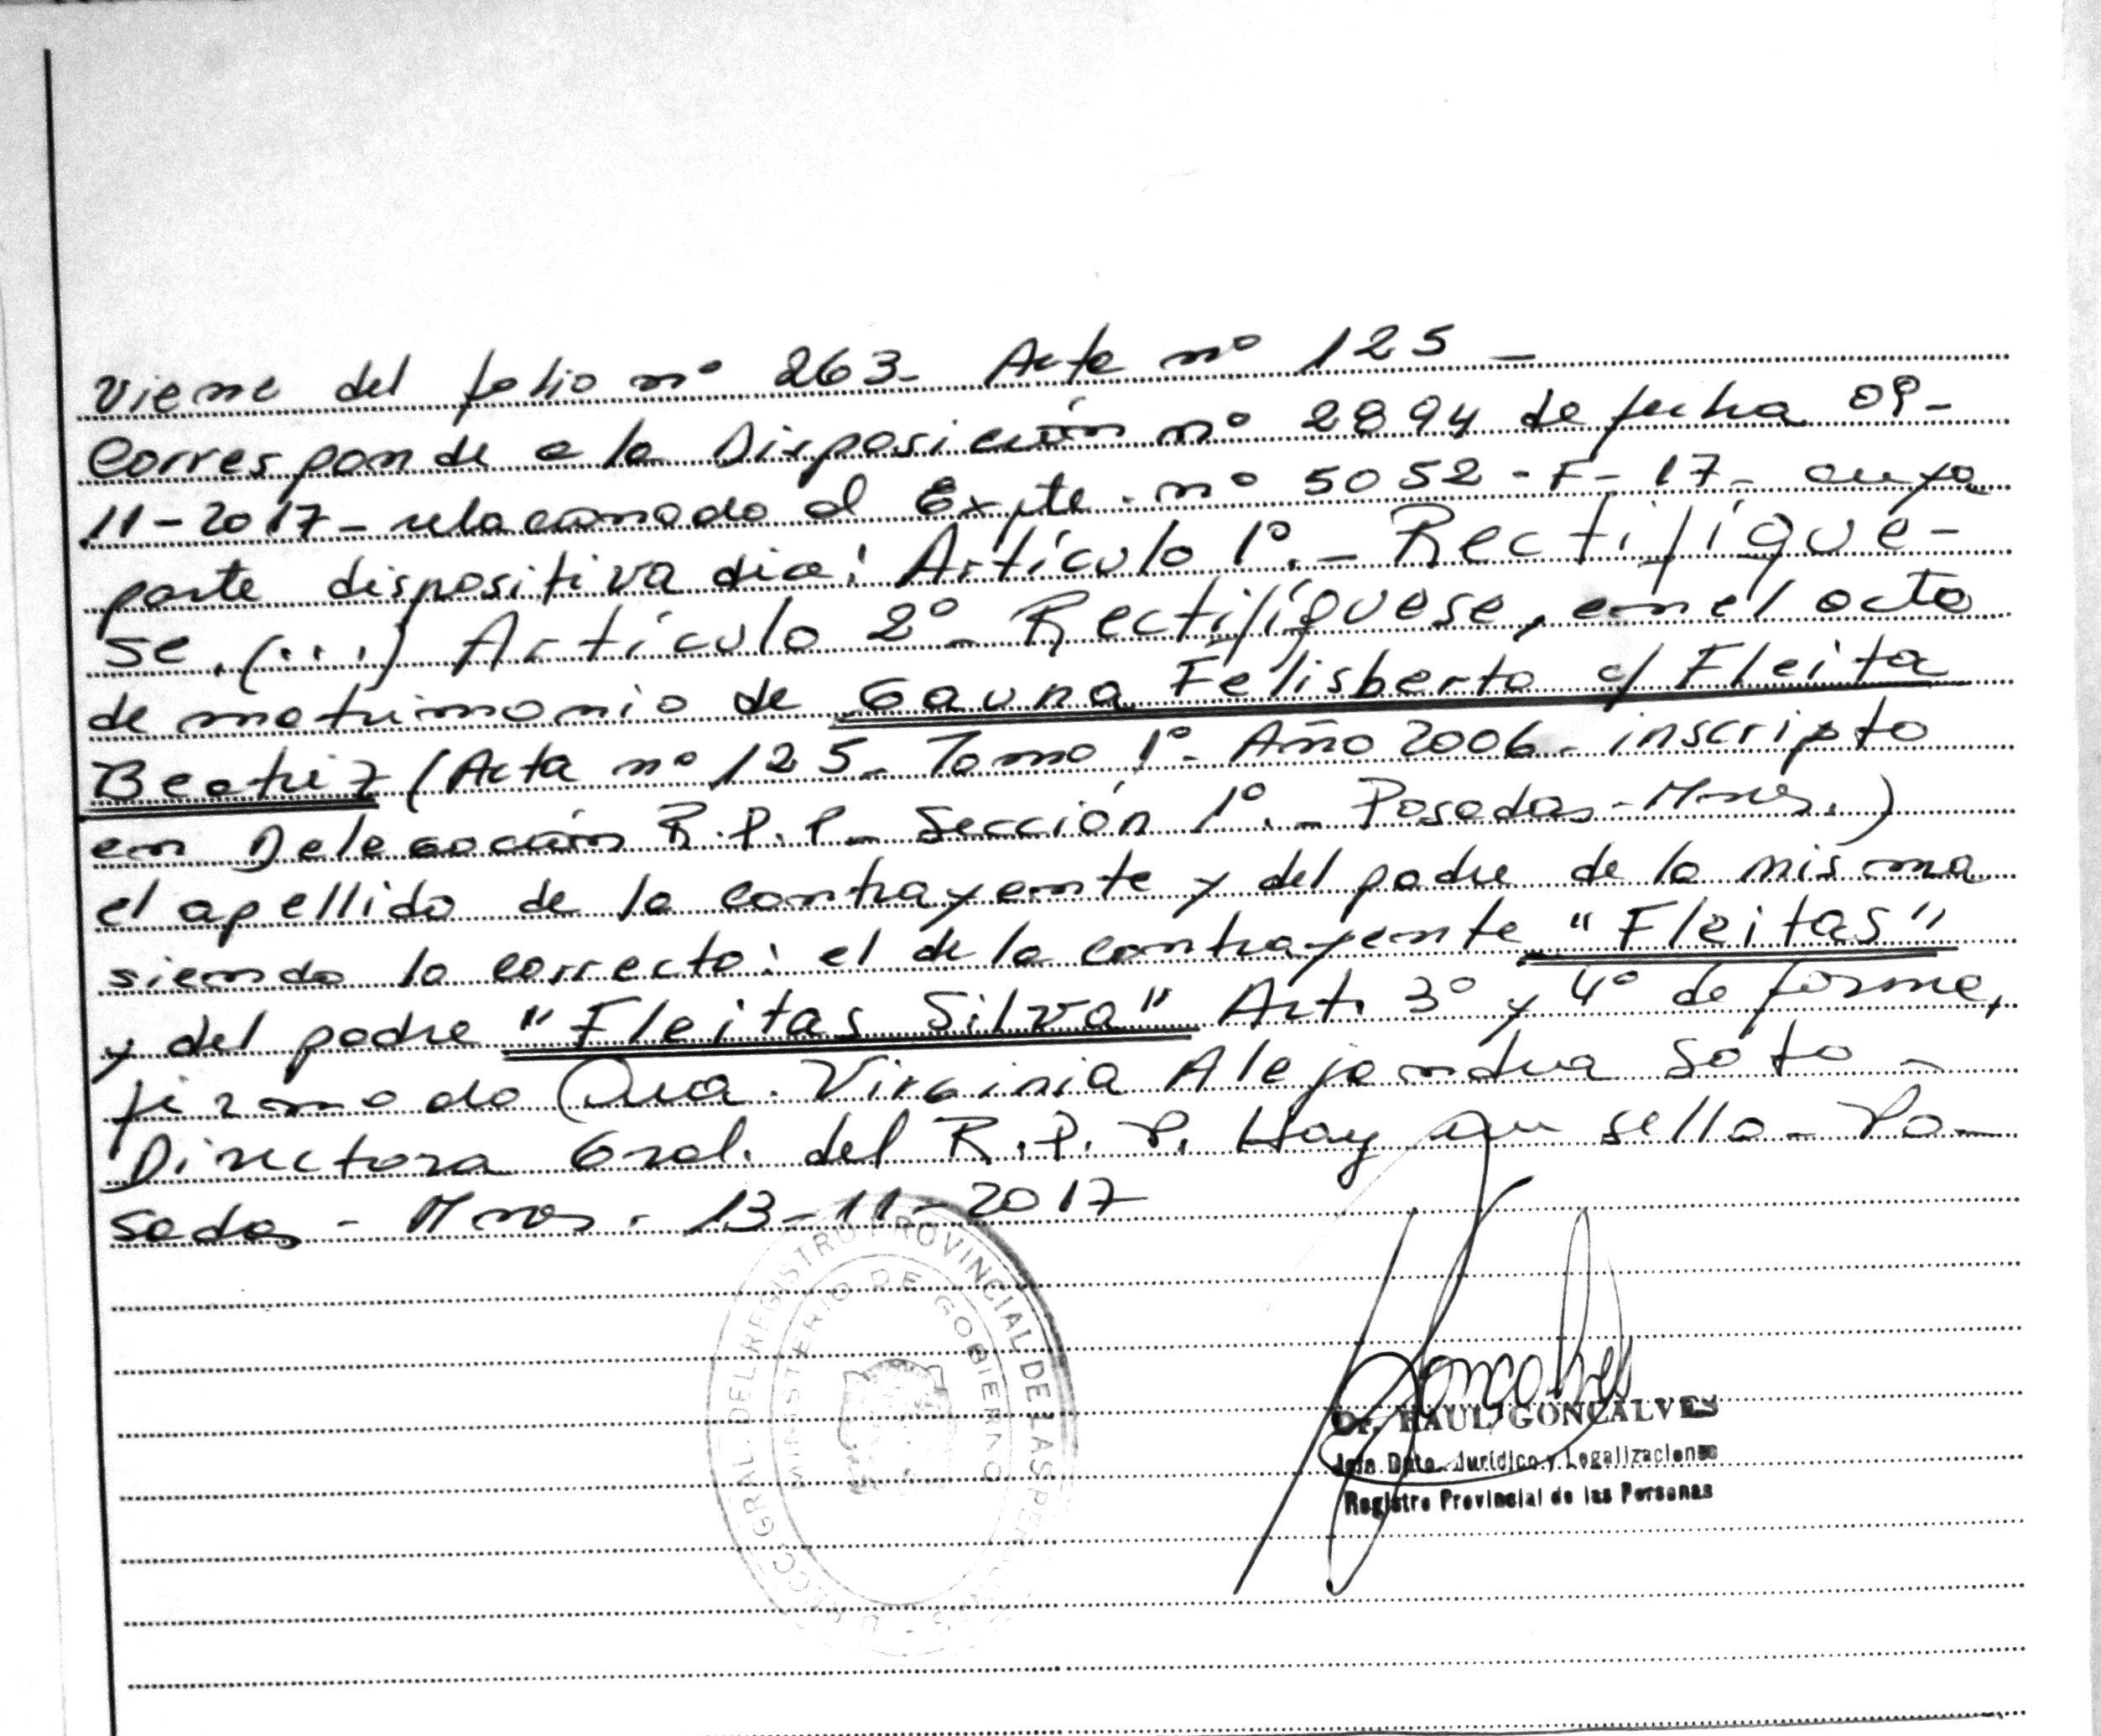 Viene del folio nº 263- Acta nº 125 -
Corresponde a la Disposición nº 2894 de fecha 09-
11-2017- relacionado al Expte. nº 5052-F-17- cuya
parte dispositiva dice: Artículo 1º.- Rectifíque-
se. (...) Artículo 2º- Rectifíquese, en el acta
de matrimonio de Gauna Felisberto c/ Fleita
Beatriz (Acta nº 125- Tomo 1º- Año 2006- inscripto
en Delegación R.P.P- Sección 1º.- Posadas-Mnes.)
el apellido de la contrayente y del padre de la misma
siendo lo correcto: el de la contrayente "Fleitas"
y del padre "Fleitas Silva" Art. 3º y 4º de forma,
firmado Dra. Virginia Alejandra Soto -
Directora Gral. del R.P.P. Hay un sello- Po-
sadas - Mnes. 13-11-2017
DIRECC. GRAL. DEL REGISTRO PROVINCIAL DE LAS PERSONAS
MINISTERIO DE GOBIERNO
Dr. RAUL GONCALVES
Jefe Dpto. Jurídico y Legalizaciones
Registro Provincial de las Personas